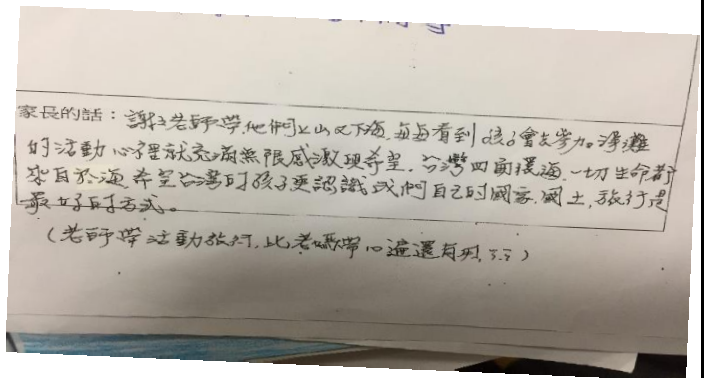 家長的話：謝謝老師帶他們上山又下海，每每看到孩子會去參加淨灘
的活動心裡就充滿無限感激與希望，台灣四面環海，一切生命都
來自於海，希望台灣的孩子要認識我們自己的國家，國土，旅行是
最好的方式。
（老師帶活動旅行，比老媽帶10遍還有用，ㄎㄎ）